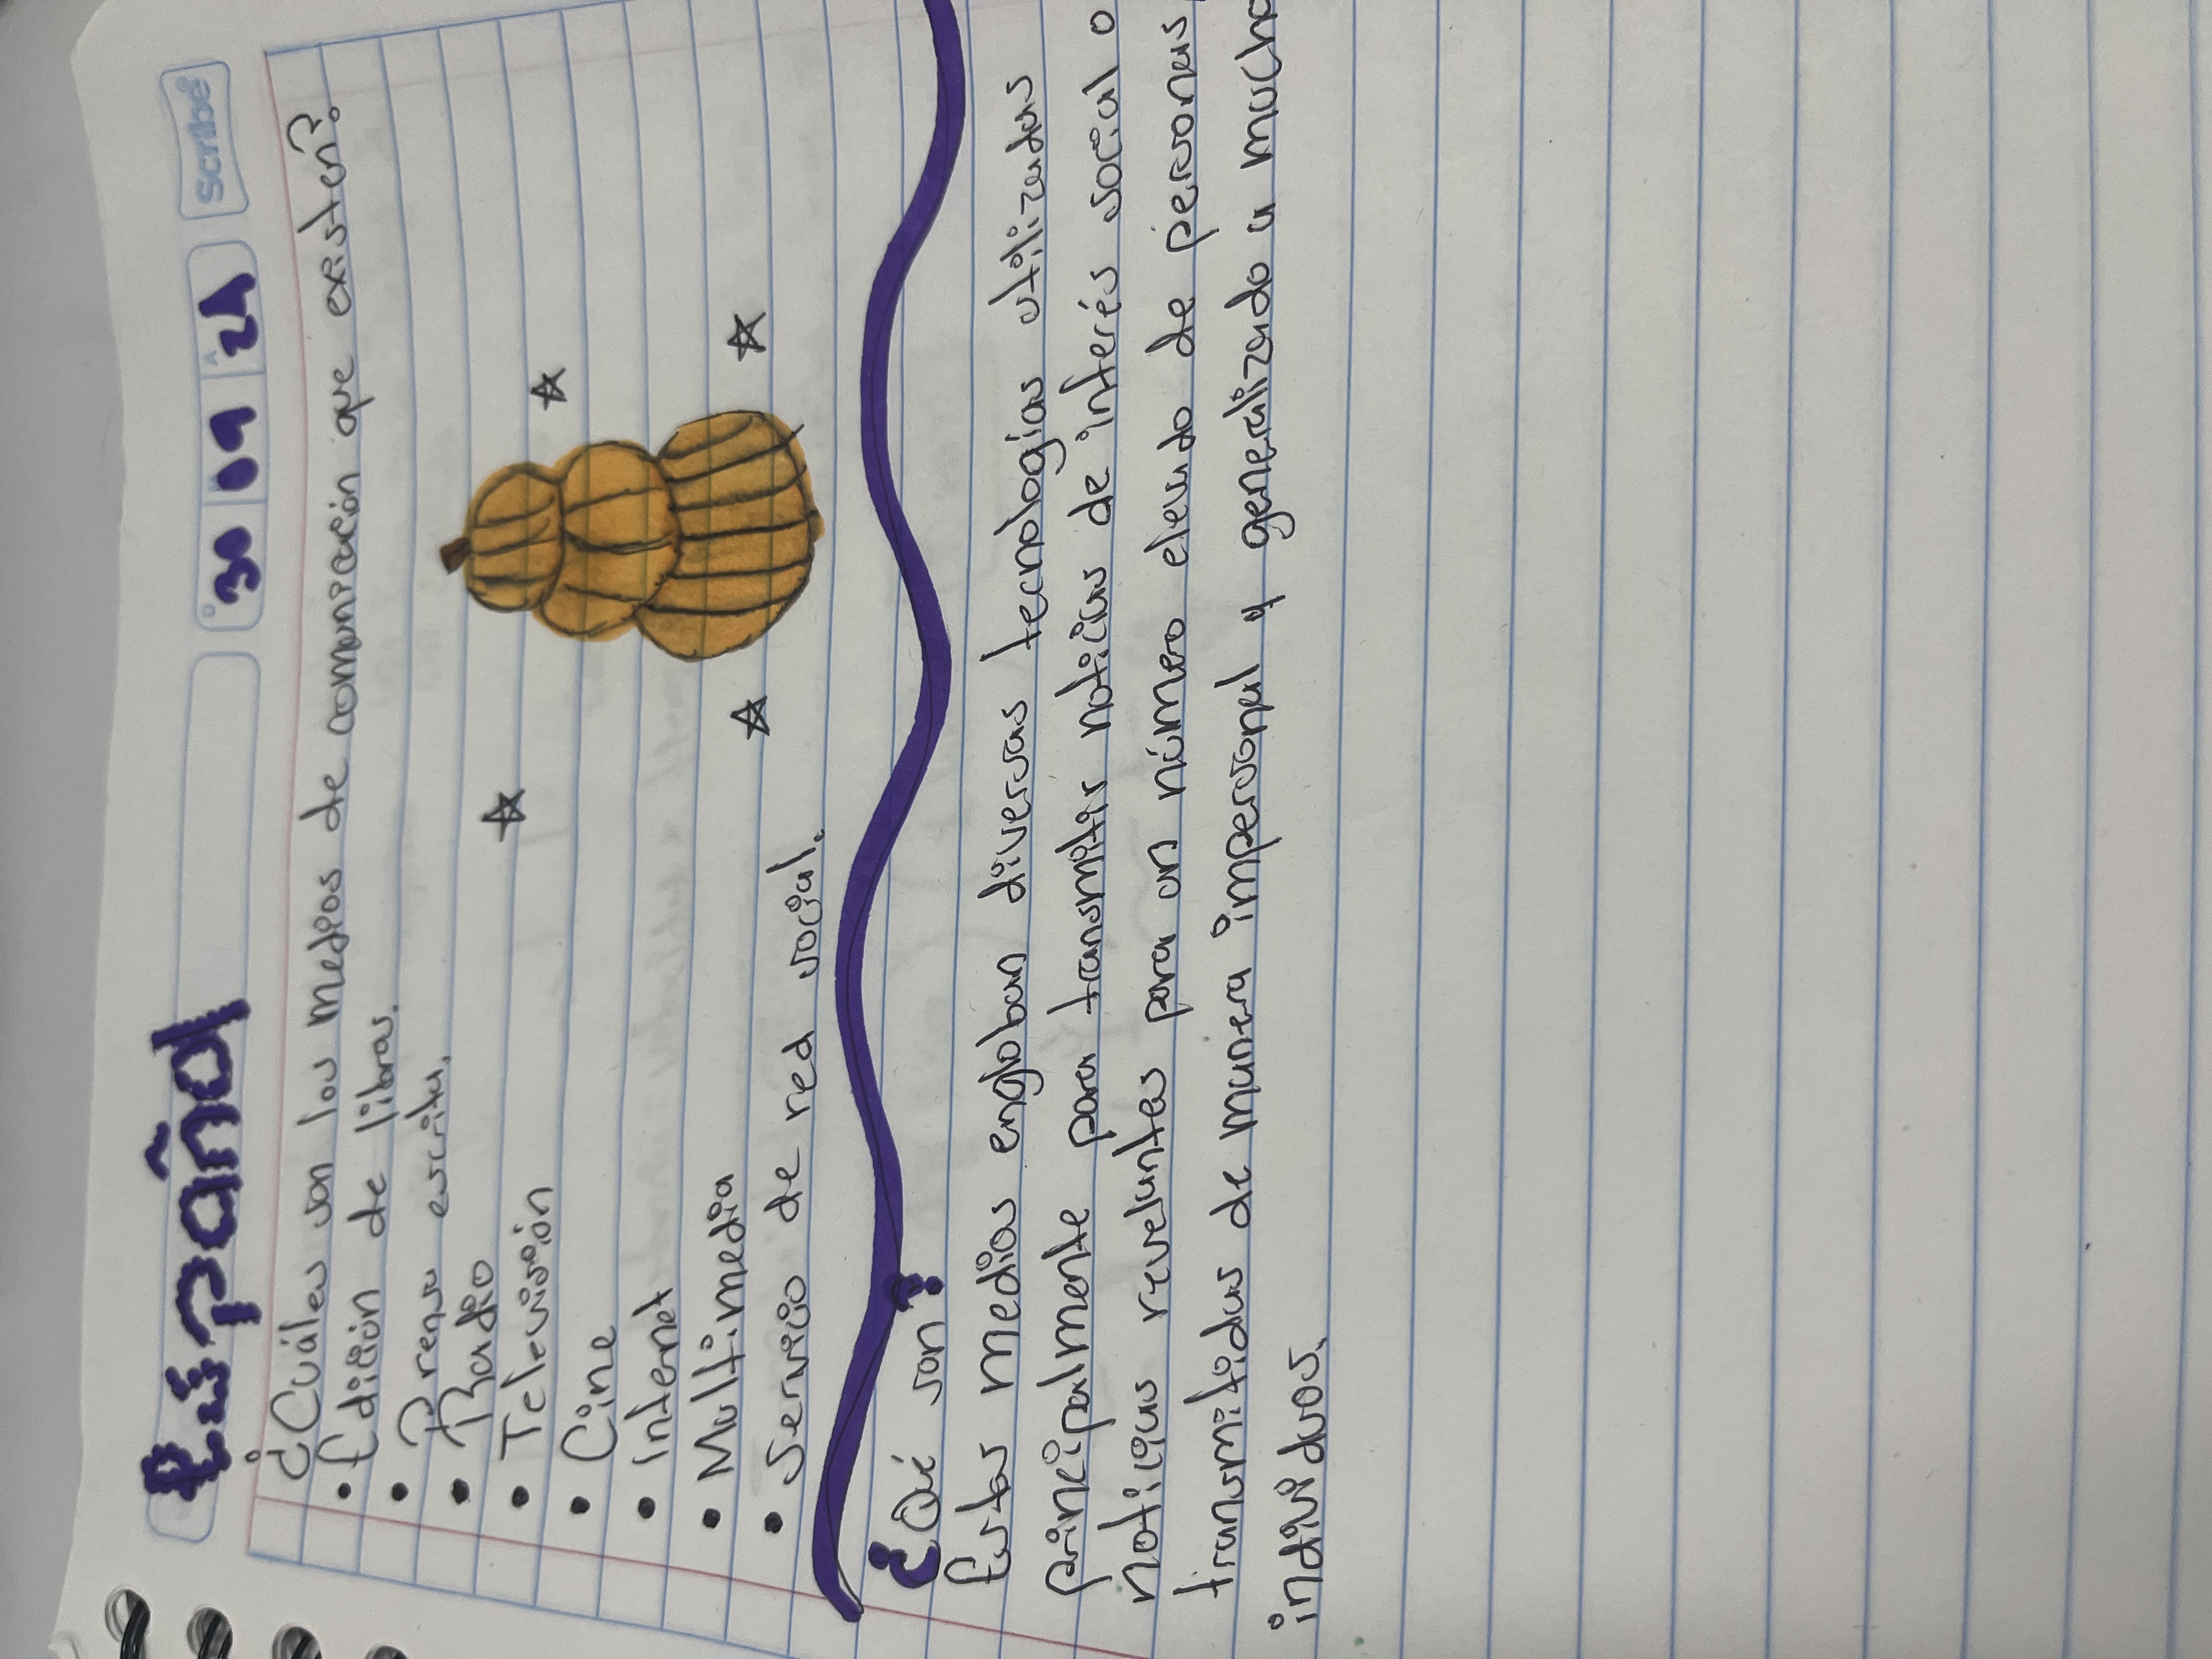 Español 30 09 24 Scribe
¿Cuáles son los medios de comunicación que existen?
• Edición de libros.
• Prensa escrita.
• Radio
• Televisión
• Cine
• Internet
• Multimedia
• Servicio de red social.
¿Qué son?
Estos medios engloban diversas tecnologías utilizadas
principalmente para transmitir noticias de interés social o
noticias relevantes para un número elevado de personas,
transmitidas de manera impersonal y generalizado a mucho
individuos.